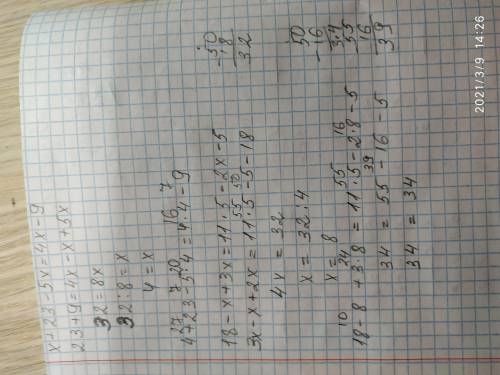 x+23-5x=4x-9
23+9=4x-x+5x
32=8x
32:8=x
4=x
27 7 20 16 7
4+23-5·4=4·4-9
18-x+3x=11·5-2x-5
55 50
3x-x+2x=11·5-5-18
4x=32
x=32:4
x=8
10 24 55 16
18-8+3·8=11·5-2·8-5
39
34=55-16-5
34=34
50
-18
32
50
-16
34
55
16
39
2021/3/9 14:26